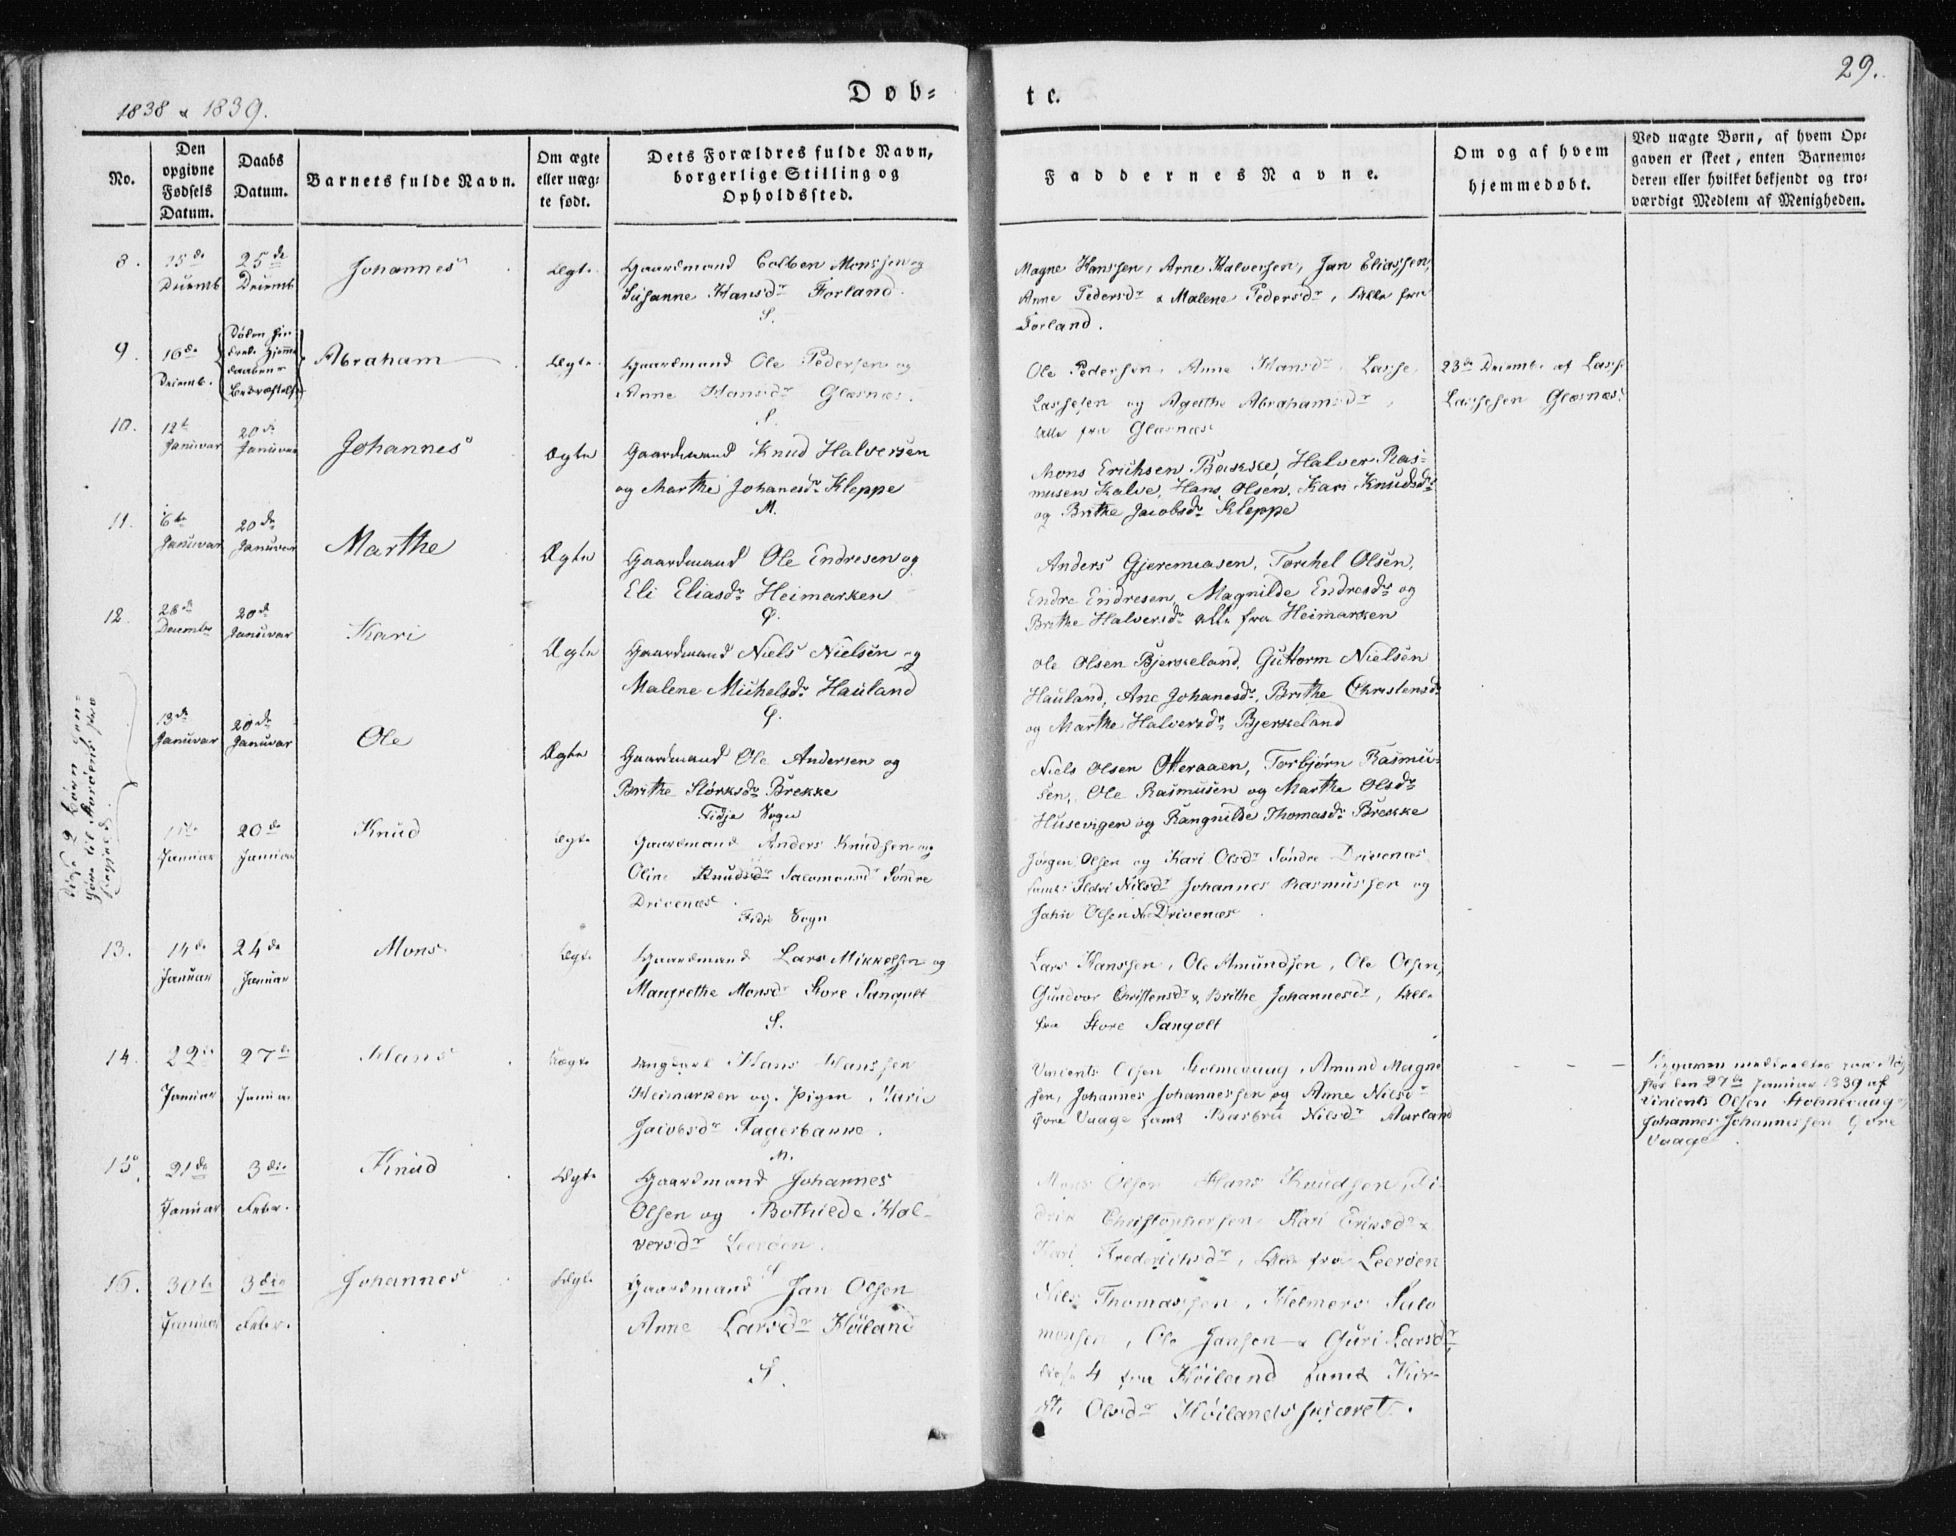 1838 & 1839.
Døb-
te.
29.
No.
Den
opgivne
Fødsels
Datum.
Daabs
Datum.
Barnets fulde Navn.
Om ægte
eller uæg-
te født.
Dets Forældres fulde Navn,
borgerlige Stilling og
Opholdssted.
Faddernes Navne.
Om og af hvem
hjemmedøbt.
Ved uægte Børn, af hvem Op-
gaven er skeet, enten Barnemo-
deren eller hvilket bekjendt og tro-
værdigt Medlem af Menigheden.
8.
15de
Decemb
25de
Decemb
Johannes
Ægte
Gaardmand Colben Monssen og
Susanne Hansdr Forland.
S.
Magne Hanssen, Arne Halversen, Jan Eliassen,
Anne Pedersdr & Malene Pedersdr, Alle fra
Forland.
9.
16de
Decemb.
Abraham
Ægte
Gaardmand Ole Pedersen og
Anne Hansdr Glæsnæs.
S.
Ole Pedersen, Anne Hansdr, Lasse
Lassesen og Agethe Abrahamsdr,
Alle fra Glæsnæs
23de Decemb. af Lasse
Lassesen Glæsnæs.
10.
12te
Januvar
20de
Januvar
Johannes
Ægte
Gaardmand Knud Halversen
og Marthe Johanesdr Kleppe
M.
Mons Erichsen Bakke, Halver Ras-
musen Kalve, Hans Olsen, Kari Knudsdr
og Brithe Jacobsdr Kleppe
11.
6te
Januvar
20de
Januvar
Marthe
Ægte
Gaardmand Ole Endresen og
Eli Eliasdr Heimarken
Anders Gjeremiasen, Torchel Olsen,
Endre Endresen, Magnilde Endresdr og
Brithe Halversdr alle fra Heimarken
12.
26de
December
20de
Januvar
Kari
Ægte
Gaardmand Niels Nielsen og
Malene Michelsdr Hauland
Ole Olsen Bjerkeland, Guttorm Nielsen
Hauland, Ane Johanesdr, Brithe Christensdr
og Marthe Halversdr Bjerkeland
13de
Januvar
20de
Januvar
Ole
Ægte
Gaardmand Ole Andersen og
Brithe Størksdr Brekke
Fidje Sogn
Niels Olsen Otteraaen, Torbjørn Rasmu-
sen, Ole Rasmusen og Marthe Olsdr
Husevigen og Rangnilde Thomasdr Brekke
Januar
20de
Januar
Knud
Ægte
Gaardmand Anders Knudsen og
Oline Salomonsdr Søndre
Drivenæs.
Fidje Sogn
Jørgen Olsen og Kari Olsdr Søndre Drivenæs
samt Nilsdr Johannes Rasmussen og
Olsen Drivenæs.
13.
14de
Januar
24de
Januar
Mons
Ægte
Gaardmand Lars Mikkelsen og
Margrethe Monsdr Store Sangolt
S.
Lars Hanssen, Ole Amundsen, Ole Olsen,
Gundvor Christensdr & Brithe Johannesdr, Alle
fra Store Sangolt
14.
22de
Januar
27de
Januar
Hans
Uægte
Ungkarl Hans Hanssen
Heimarken og Pigen Marie
Jacobsdr Fagerbakke.
M.
Vincents Olsen Holmevaag, Amund Magne
sen, Johannes Johannessen og Anne Nilsdr
Vaage samt Barbru Nilsdr Aarland
- - -
den 27de Januar 1839 af
Vincents Olsen Holmevaag
Johannes Johannessen
Vaage
15.
21de
Januar
3die
Febr.
Knud
Ægte
Gaardmand Johannes
Olsen og Bothilde Hal-
versdr Leerøen.
S
Mons Olsen Hans Knudsen, Di-
drik Christophersen Kari Eriksdr &
Kari Frederichsdr, Alle fra Leerøen
16.
30te
Januar
3die
Febr.
Johannes
Ægte
Gaardmand Jan Olsen
Anne Larsdr Høiland
S.
Nils Thomassen, Helmers Salo
monsen, Ole Jansen & Guri Larsdr
disse 4 fra Høiland samt Kir-
sti Olsdr Høilandskjæret.